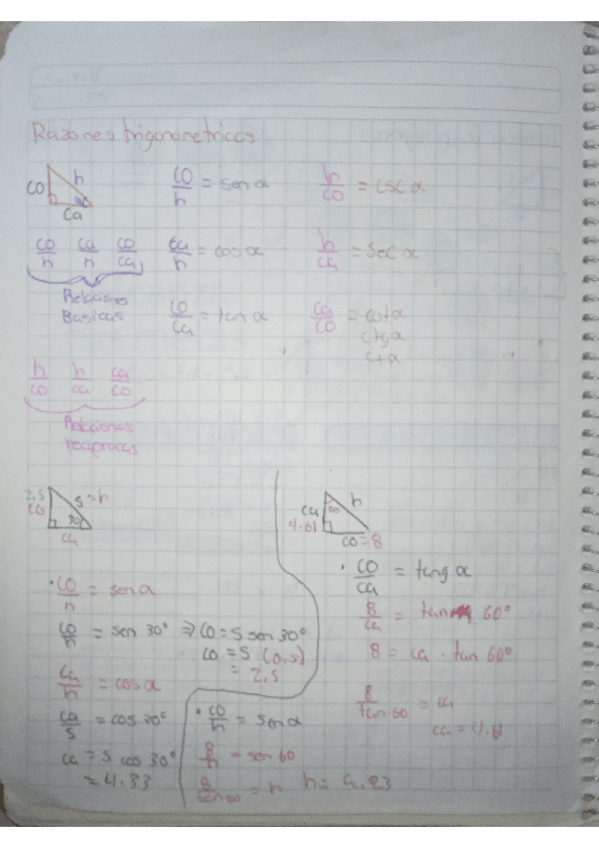 Razones trigonometricas
co h ca
co/h = sen α
h/co = csc α
co/h ca/h co/ca
ca/h = cos α
h/ca = sec α
Relaciones
Basicas
co/ca = tan α
ca/co = cot α
ctg α
ct α
h/co h/ca ca/co
Relaciones
reciprocas
2.5 co 5=h 30° ca
· co/h = sen α
co/h = sen 30° => co = 5 sen 30°
co = 5 (0.5)
= 2.5
ca/h = cos α
ca/5 = cos 30°
ca = 5 cos 30°
= 4.33
ca 60 h
co=8
· co/ca = tang α
8/ca = tan 60°
8 = ca · tan 60°
8/tan 60 = ca
· co/h = sen α
8/h = sen 60
8/sen 60 = h